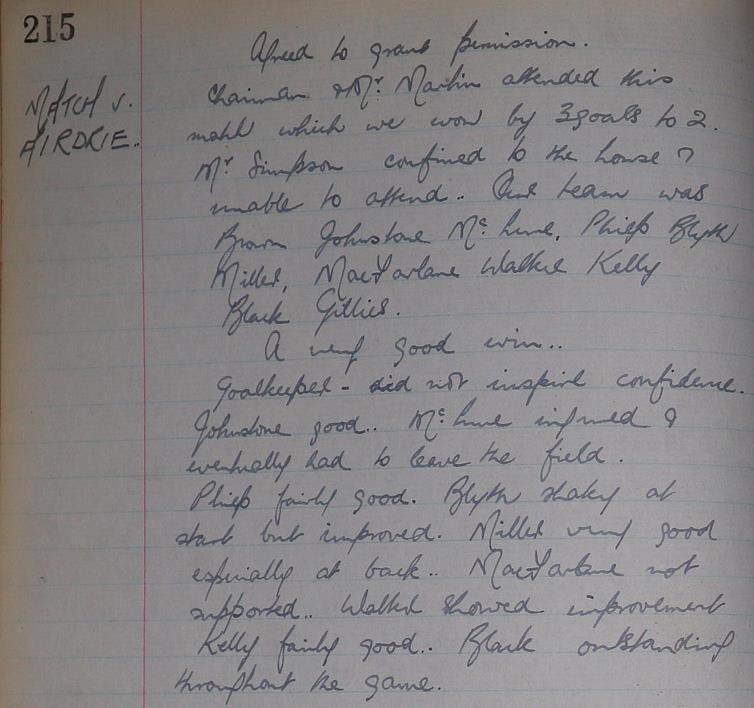 215
Agreed to grant permission.
MATCH v.
AIRDRIE..
Chairman & Mr. Martin attended this
match which we won by 3 goals to 2.
Mr Simpson confined to the house &
unable to attend.. Our team was
Brown Johnstone Mc Lure, Philp Blyth
Miller, MacFarlane Walker Kelly
Black Gillies.
A very good win..
Goalkeeper - did not inspire confidence.
Johnstone good.. Mc Lure injured &
eventually had to leave the field.
Philp fairly good. Blyth shaky at
start but improved. Miller very good
especially at back.. MacFarlane not
supported.. Walker showed improvement
Kelly fairly good.. Black outstanding
throughout the game.